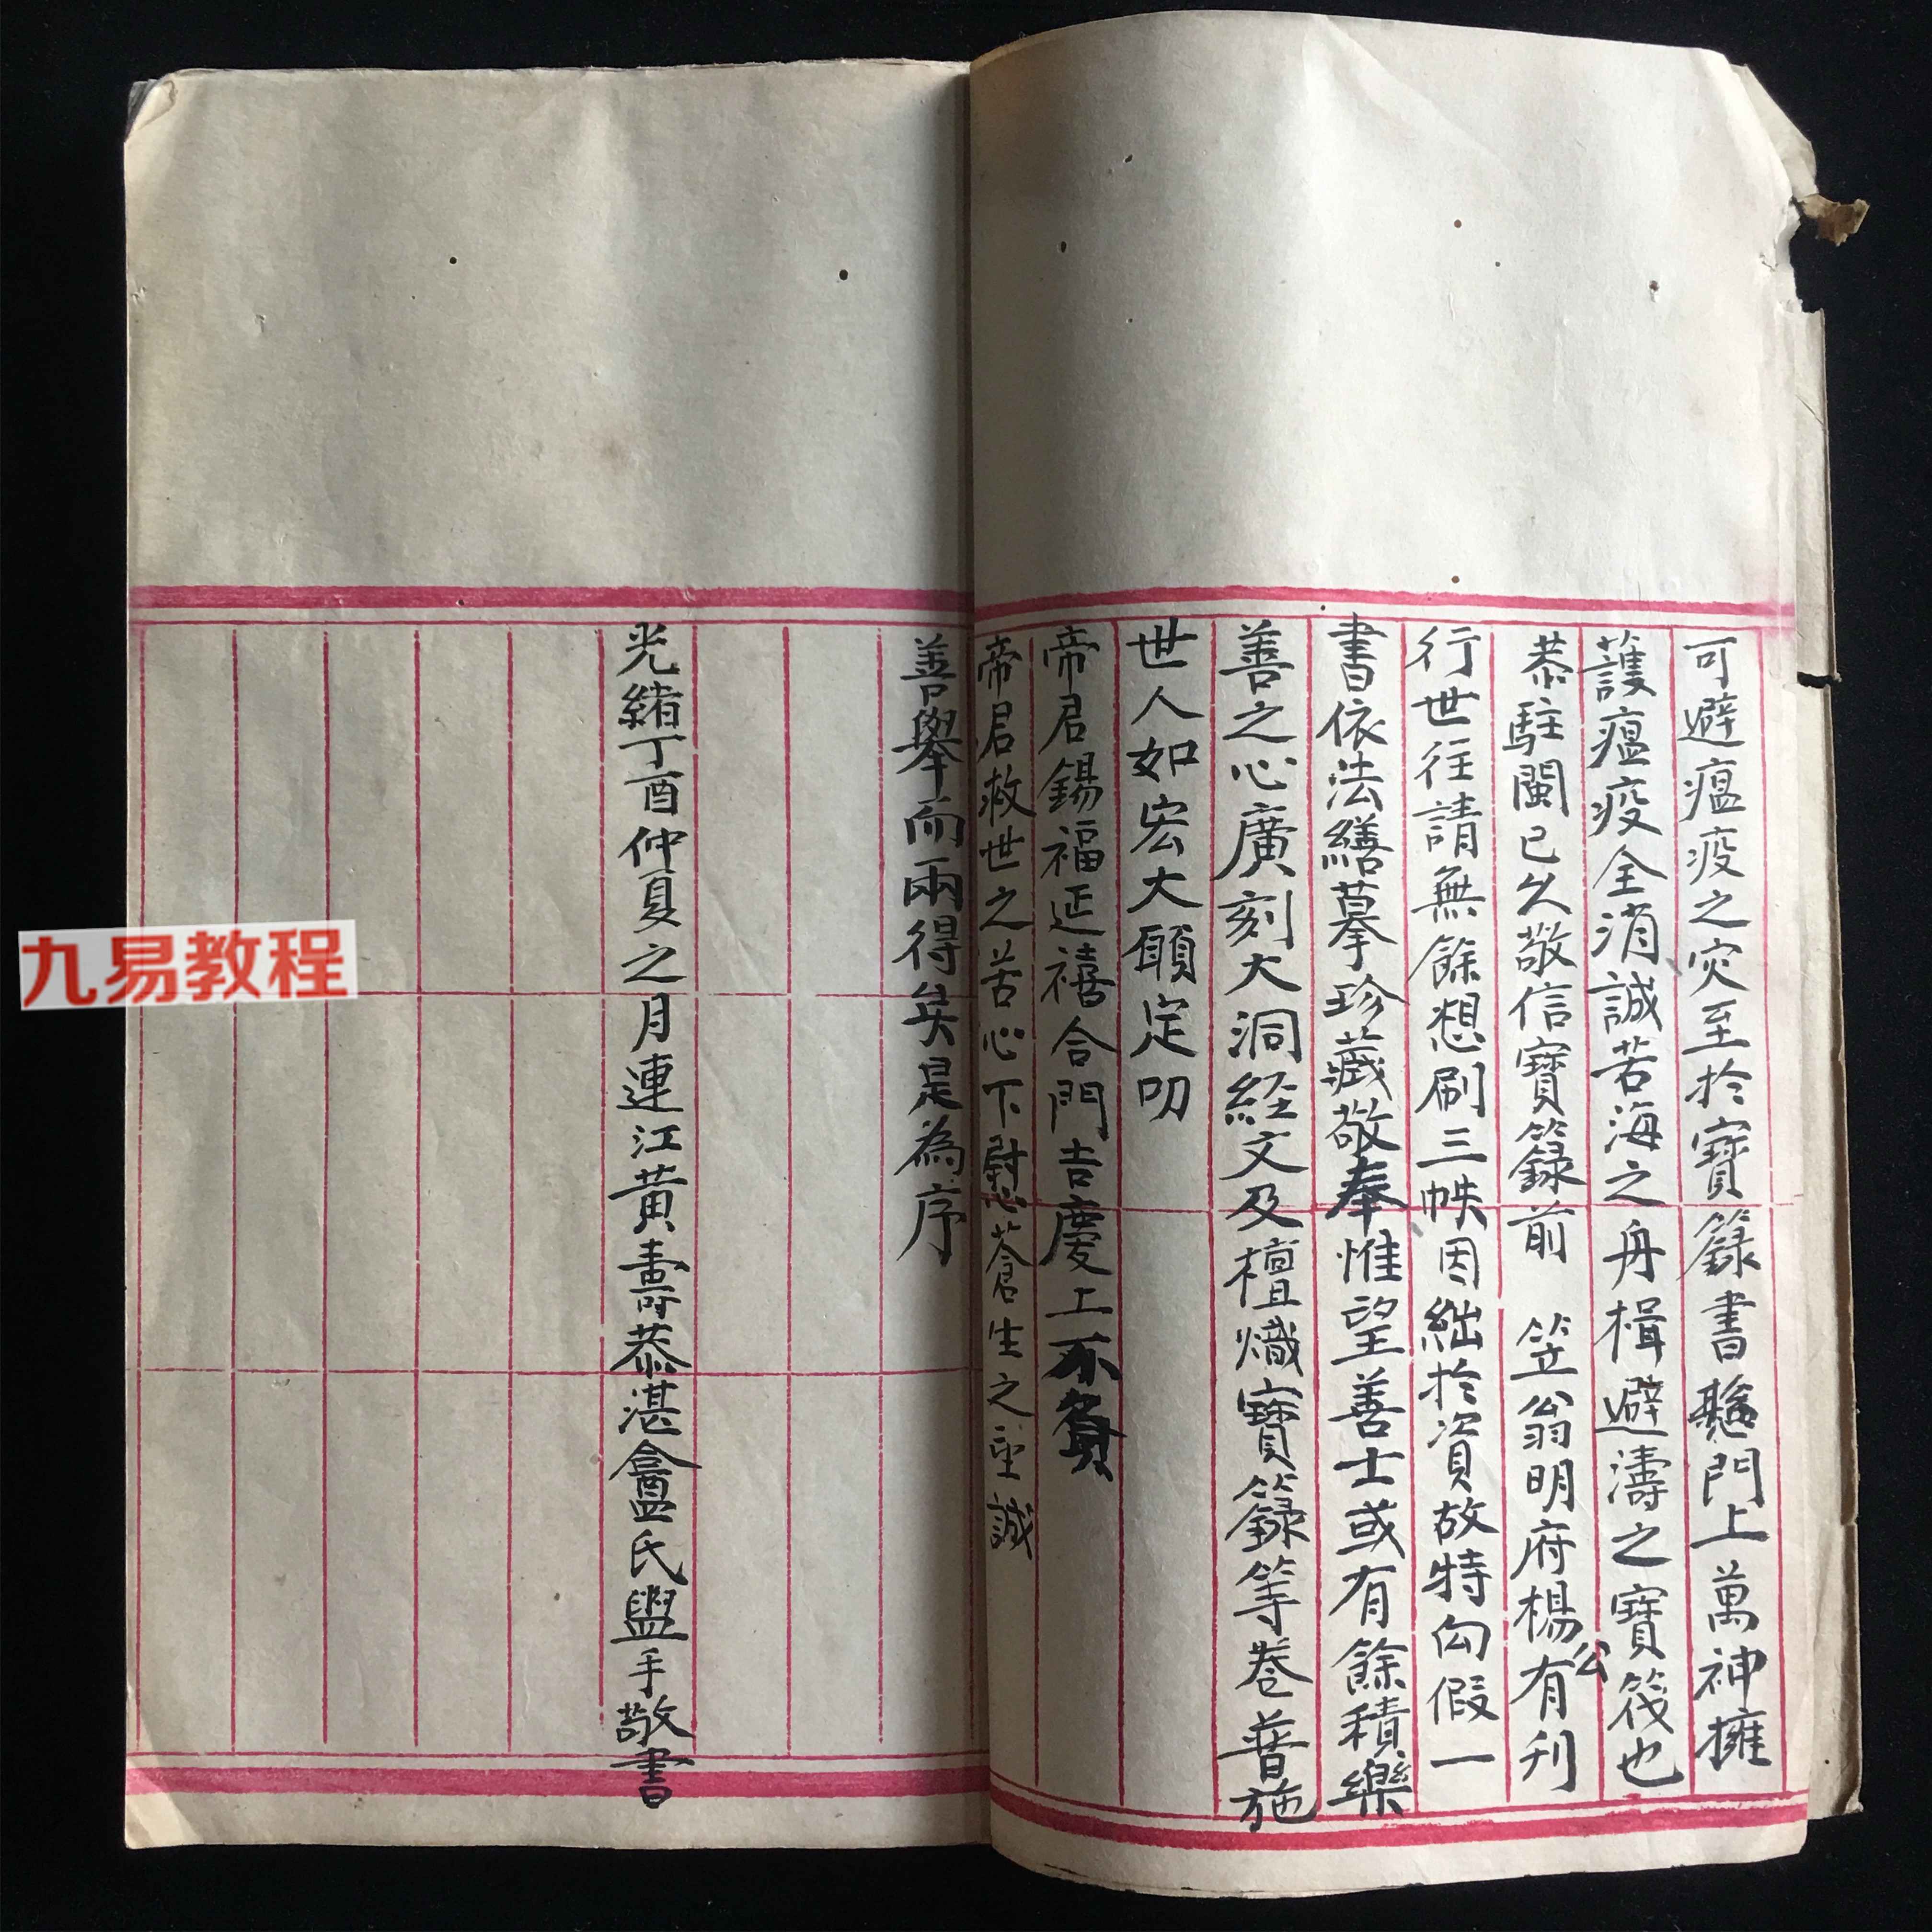 可避瘟疫之灾至於寶籙書懸門上萬神擁
護瘟疫全消誠苦海之舟楫避濤之寶筏也
恭駐閩已久敬信寶籙前 笠翁明府楊公有刋
行世往請無餘想刷三帙因絀於資故特匃假一
書依法繕摹珍藏敬奉惟望善士或有餘積樂
善之心廣刻大洞經文及檀熾寶籙等卷普施
世人如宏大願定叨
帝君錫福延禧合門吉慶上不負
帝君救世之苦心下慰蒼生之望誠
善舉而兩得矣是為序
光緒丁酉仲夏之月連江黃壽恭湛盦氏盥手敬書
九易教程